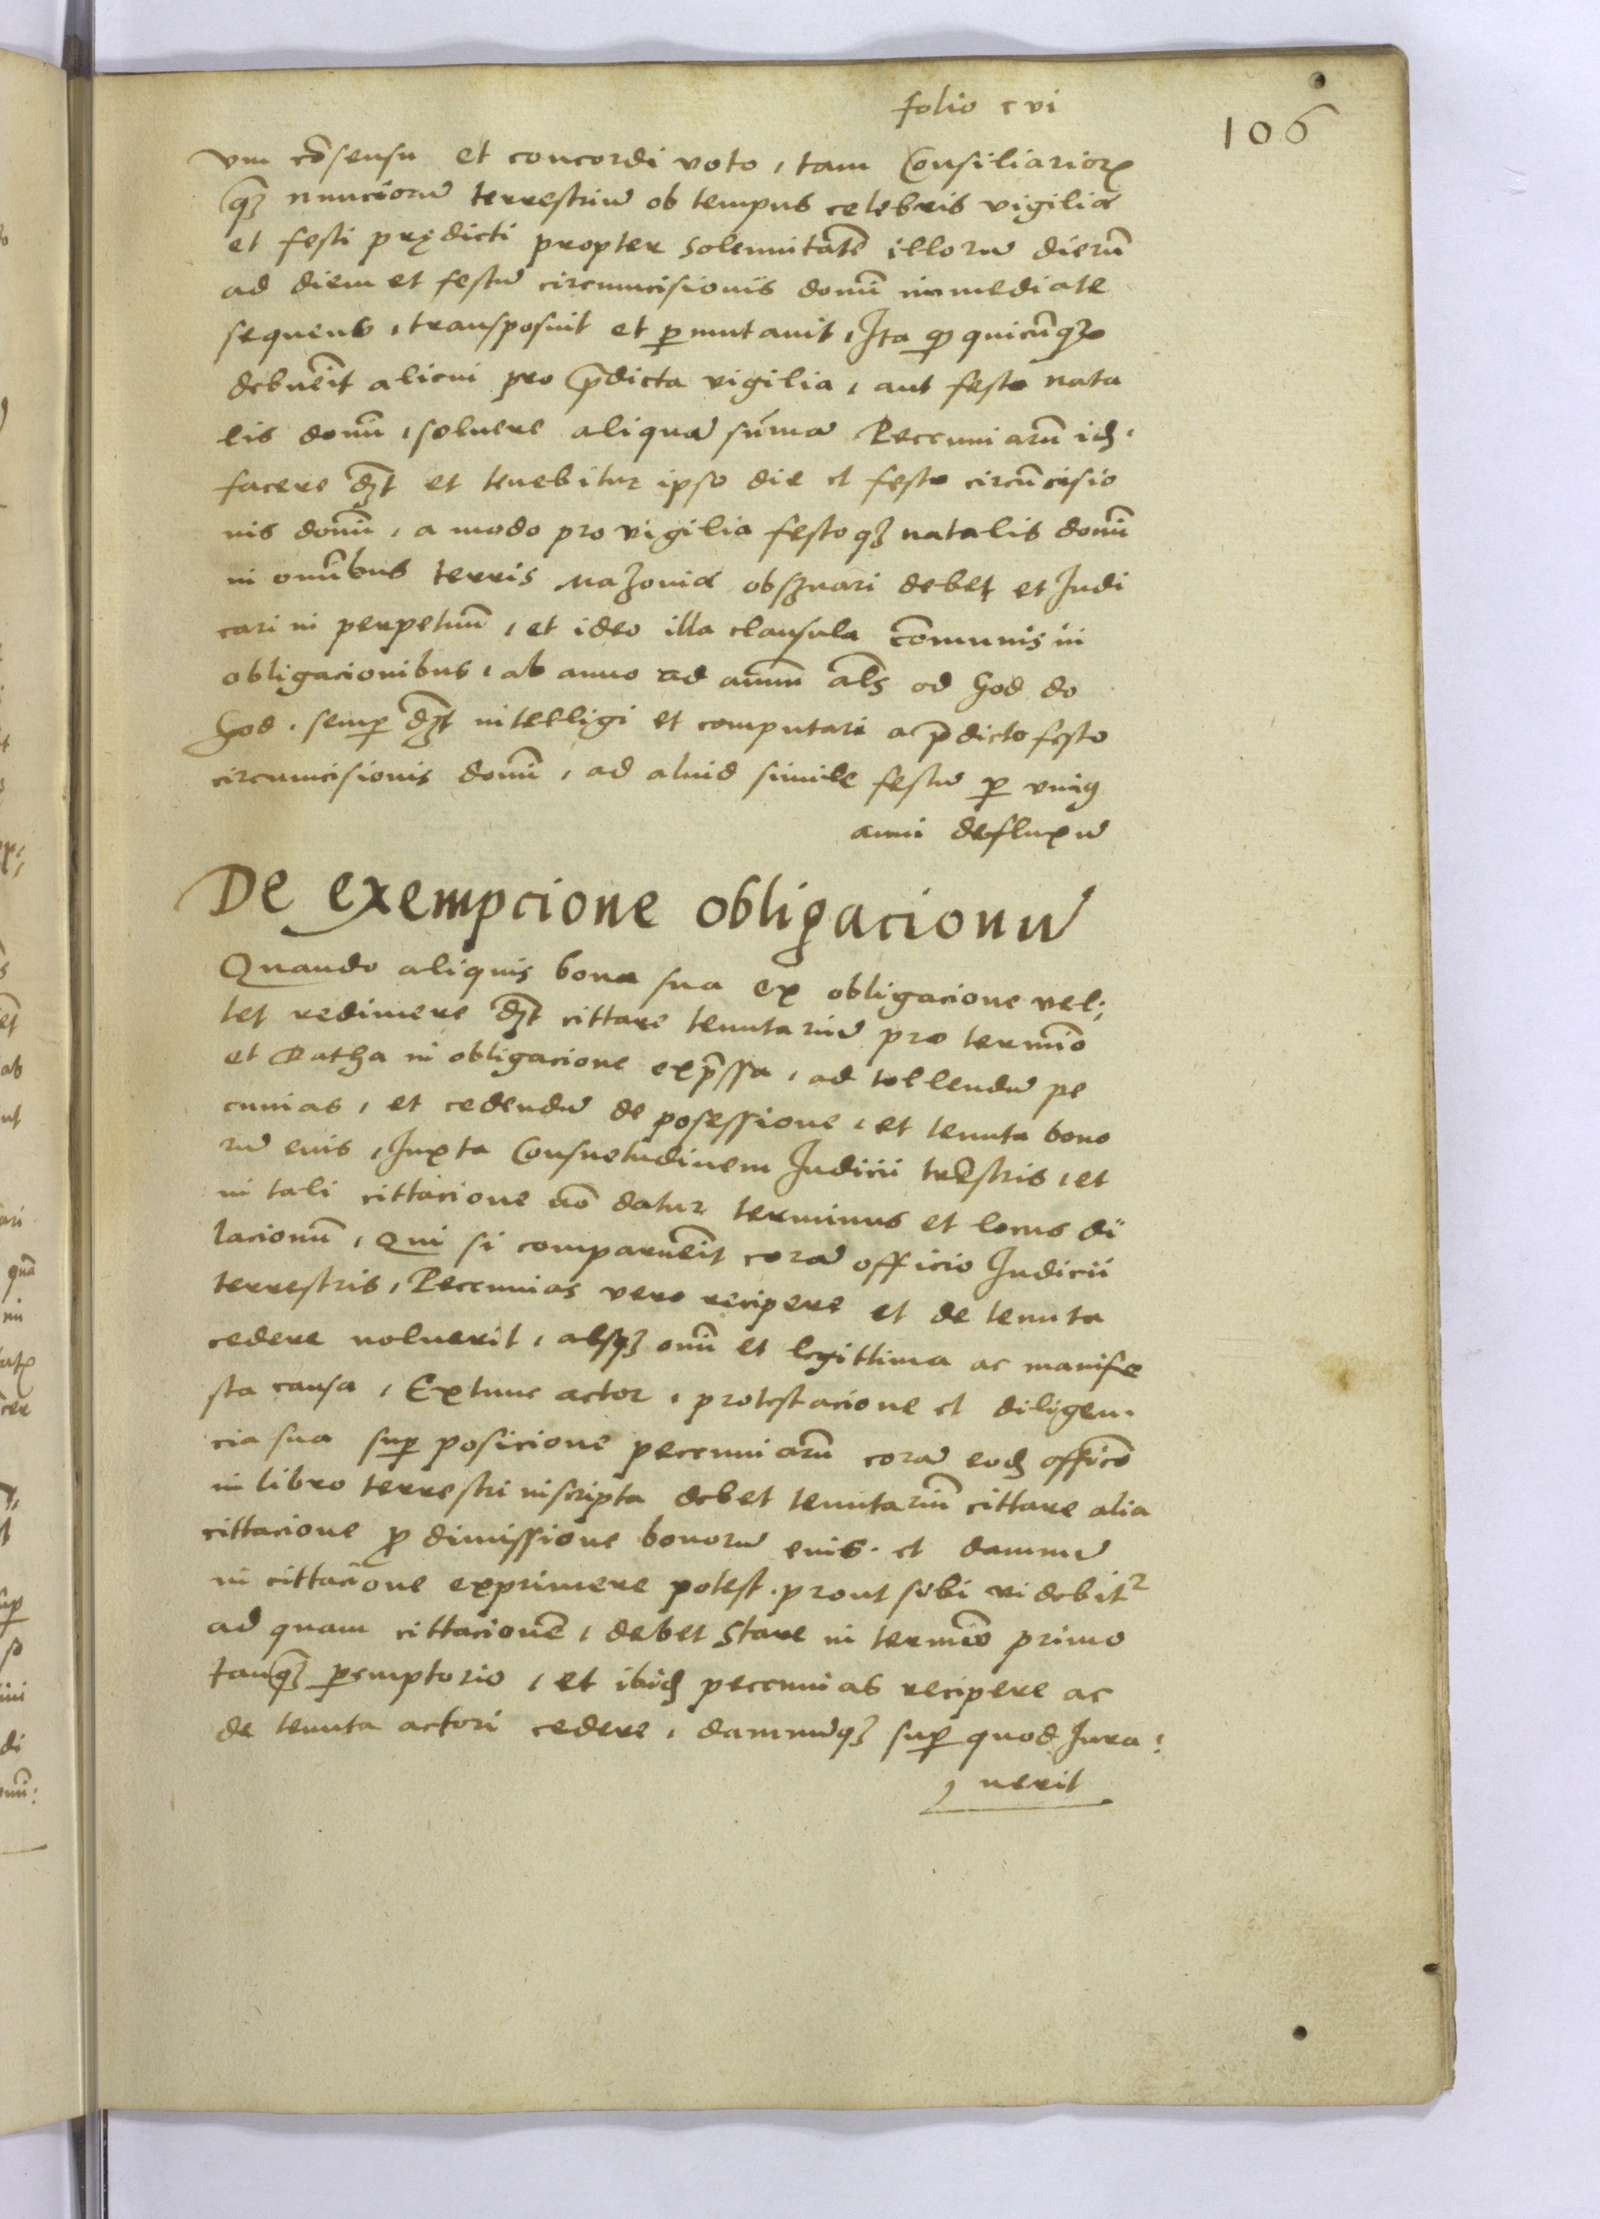 folio cvi
106
vm cōsensu et concordi voto, tam Consiliarioꝝ
qꝫ nuncioru̅ terrestriu̅ ob tempus celebris vigiliæ
et festi prędicti propter solennitatē illoru̅ dierū
ad diem et festu̅ circumcisionis domī immediate
sequens, transposuit et ꝑmutauit, Ita ꝙ quicūqꝫ
debuerīt alicui pro p̄dicta vigilia, aut festo nata
lis domī, soluere aliqua̅ sūma̅ Peccuniarū id
facere dꝫt et tenebitur ipso die et festo circūcisio
nis domī, a modo pro vigilia festoqꝫ natalis domī
in om̄ibus terris Mazouiæ obsꝫuari debet et Iudi
cari in perpetuū, et ideo illa clausula cōmunis in
obligacionibus, ab anno ad annū als̄ od God do
God, semꝑ dꝫt intelligi et computari a p̄dicto festo
circumcisionis domī, ad aliud simile festu̅ ꝑ vniꝰ
anni defluxu̅
De exempcione obligacionu̅
Quando aliquis bona sua ex obligacione vel;
let redimere dꝫt cittare tenutariu̅ pro termīo
et Ratha in obligacione exp̄ssa, ad tollendu̅ pe
cunias, et cedendu̅ de posessione, et tenuta bono
ru̅ eius, Iuxta Consuetudinem Iudicii trēstris, et
in tali cittacione nō datur terminus et locus di
lacionū, Qui si comparuerīt cora̅ officio Iudicii
terrestris, Peccunias vero recipere et de tenuta
cedere noluerit, absqꝫ om̄i et legittima ac manife
sta causa, Extunc actor, protestacione et diligen
cia sua suꝑ posicione peccuniarū cora̅ eod officō
in libro terrestri inscripta debet tenutariū cittare alia
cittacione ꝓ dimissione bonoru̅ eius. et damnu̅
in cittacīone exprimere potest. prout sibi videbitr
ad quam cittacionē, debet stare in termīo primo
tanqꝫ ꝑemptorio, et ibid peccunias recipere ac
de tenuta actori cedere, damnu̅qꝫ suꝑ quod Iura:
uerit